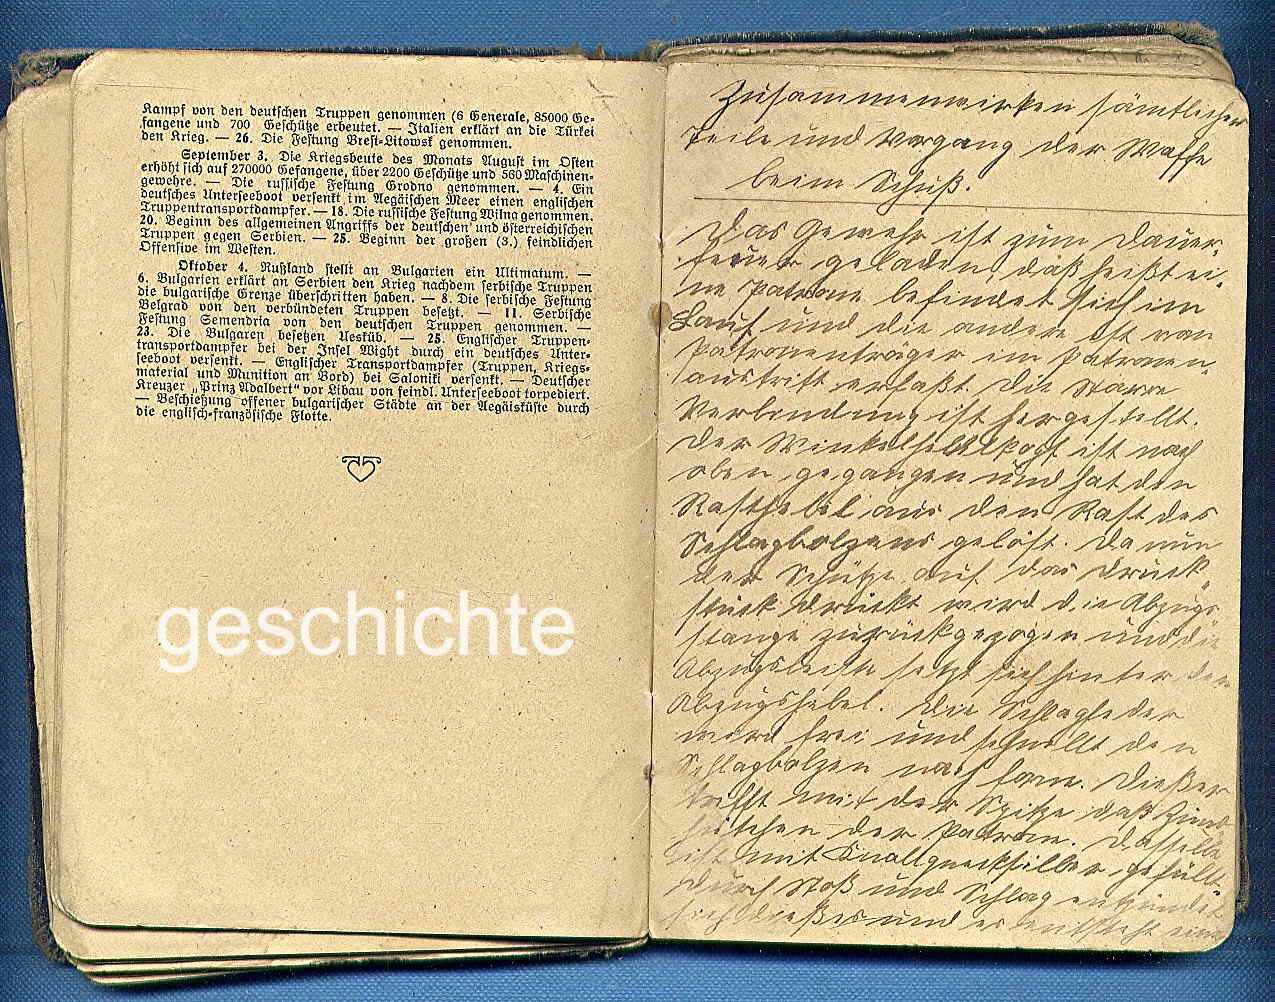 Kampf von den deutschen Truppen genommen (6 Generale, 85000 Ge-
fangene und 700 Geschütze erbeutet. — Italien erklärt an die Türkei
den Krieg. — 26. Die Festung Brest-Litowsk genommen.
September 3. Die Kriegsbeute des Monats August im Osten
erhöht sich auf 270000 Gefangene, über 2200 Geschütze und 560 Maschinen-
gewehre. — Die russische Festung Grodno genommen. — 4. Ein
deutsches Unterseeboot versenkt im Aegäischen Meer einen englischen
Truppentransportdampfer. — 18. Die russische Festung Wilna genommen.
20. Beginn des allgemeinen Angriffs der deutschen und österreichischen
Truppen gegen Serbien. — 25. Beginn der großen (3.) feindlichen
Offensive im Westen.
Oktober 4. Rußland stellt an Bulgarien ein Ultimatum. —
6. Bulgarien erklärt an Serbien den Krieg nachdem serbische Truppen
die bulgarische Grenze überschritten haben. — 8. Die serbische Festung
Belgrad von den verbündeten Truppen besetzt. — 11. Serbische
Festung Semendria von den deutschen Truppen genommen. —
23. Die Bulgaren besetzen Uesküb. — 25. Englischer Truppen-
transportdampfer bei der Insel Wight durch ein deutsches Unter-
seeboot versenkt. — Englischer Transportdampfer (Truppen, Kriegs-
material und Munition an Bord) bei Saloniki versenkt. — Deutscher
Kreuzer „Prinz Adalbert" vor Libau von feindl. Unterseeboot torpediert.
— Beschießung offener bulgarischer Städte an der Aegäisküste durch
die englisch-französische Flotte.
geschichte
Zusammenwirken sämtlicher
Teile und Vorgang der Waffe
beim Schuß.
Das Gewehr ist zum Dauer-
feuer geladen, daß heißt ei-
ne Patrone befindet sich im
Lauf und die andere ist vom
Patronenträger im Patronen-
austritt erfaßt. Die starre
Verbindung ist hergestellt.
Der Winkelhebelkopf ist nach
oben gegangen und hat den
Rasthebel aus den Rast des
Schlagbolzens gelöst. Da nun
der Schütze auf das Druck-
stück drückt wird die Abzugs-
stange zurückgezogen und die
Abzugsleiste setzt sich hinter den
Abzugshebel. Die Schlagfeder
wird frei und schnellt den
Schlagbolzen nach forne. Dießer
trifft mit der Spitze daß Zünd-
hütchen der Patrone. Dasselbe
ist mit Knallquecksilber gefüllt.
Durch Stoß und Schlag entzündet
sich dießes und es entsteht eine